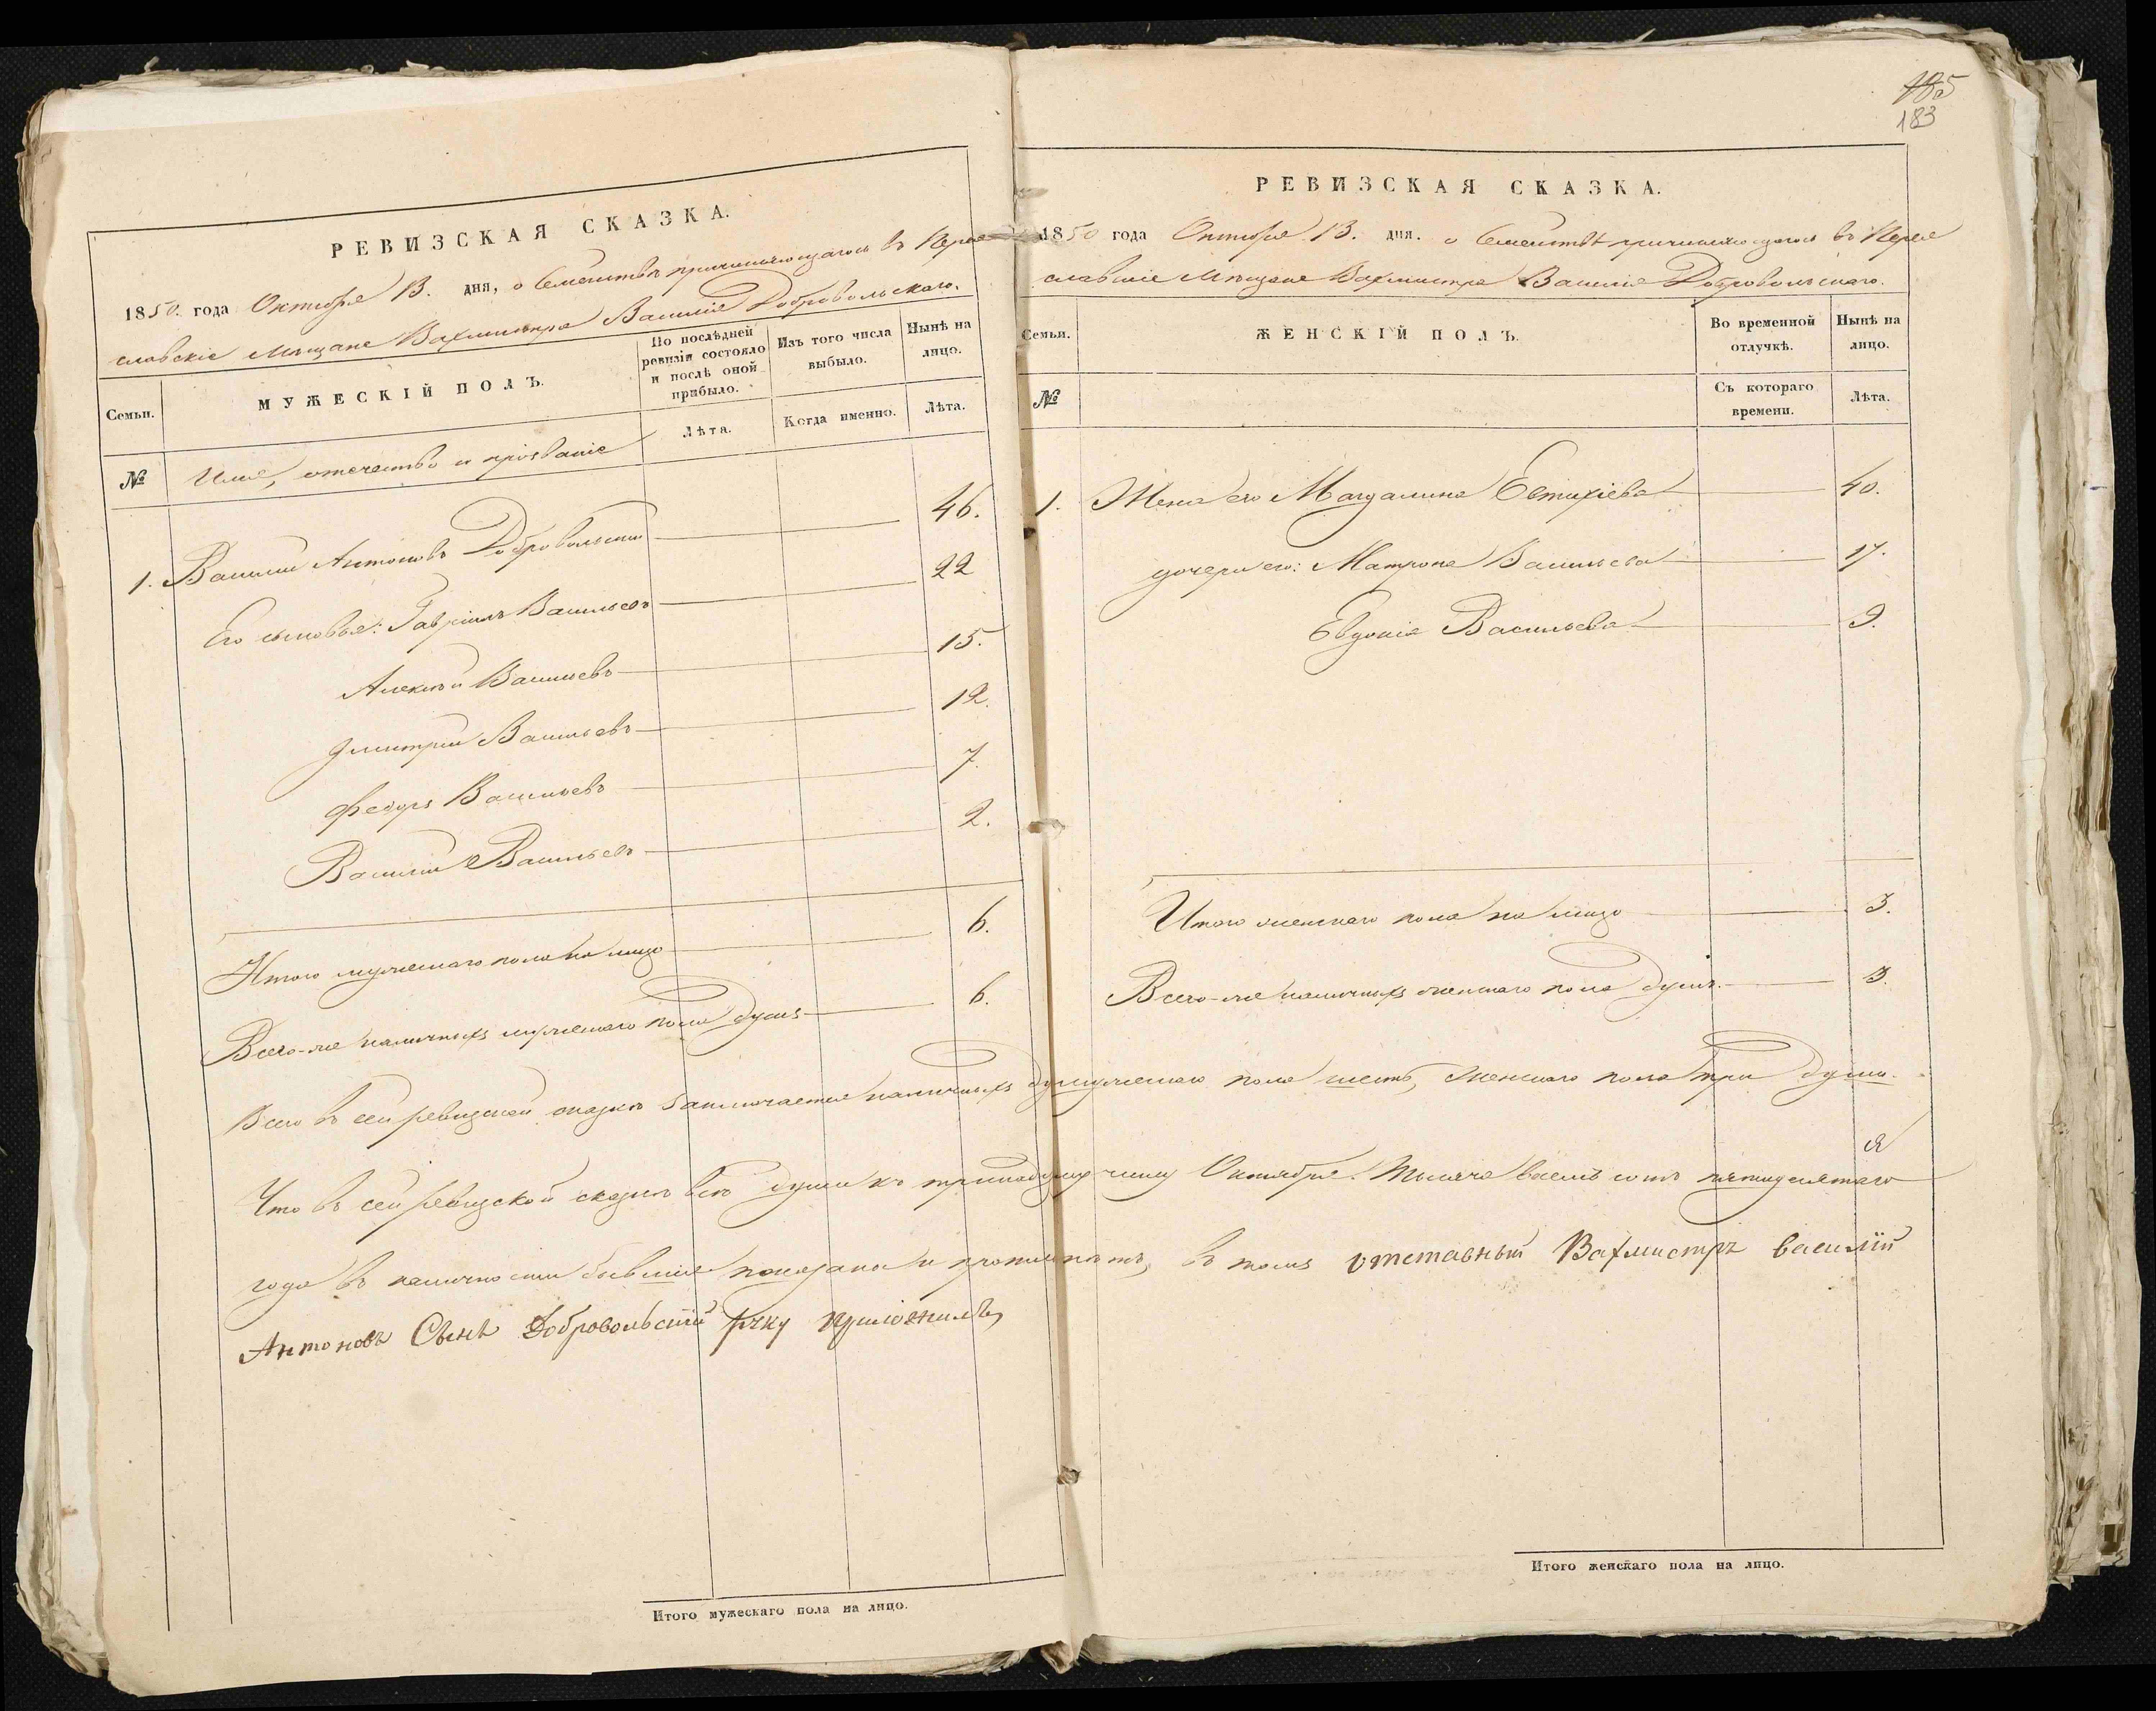 185
183
РЕВИЗСКАЯ СКАЗКА.
1850. года Октября 13. дня, о Семействѣ причисляющагося въ Перея
славскіе Мѣщане Вахмистра Василія Добровольскаго.
Семьи.
МУЖЕСКІЙ ПОЛЪ.
По послѣдней
ревизіи состояло
и послѣ оной
прибыло.
Изъ того числа
выбыло.
Нынѣ на
лицо.
Лѣта.
Когда именно.
Лѣта.
№ Имя, отечество и прозваніе
1. Василій Антоновъ Добровольскій 46.
Его сыновья: Гавріилъ Васильевъ 22
Алексѣй Васильевъ 15.
Дмитрій Васильевъ 12.
Федоръ Васильевъ 7.
Василій Васильевъ 2.
Итого мужескаго пола на лицо 6.
Всего-же наличныхъ мужескаго пола душъ 6.
РЕВИЗСКАЯ СКАЗКА.
1850 года Октября 13. дня. о Семействѣ причисляющагося въ Перея
славскіе Мѣщане Вахмистра Василія Добровольскаго.
Семьи.
ЖЕНСКІЙ ПОЛЪ.
Во временной
отлучкѣ.
Нынѣ на
лицо.
№
Съ котораго
времени.
Лѣта.
1. Жена его Магдалина Евтихіева 40.
дочери его: Матрона Васильева 17.
Евдокія Васильева 9.
Итого женскаго пола на лицо 3.
Всего-же наличныхъ женскаго пола душъ. 3.
Всего въ сей ревизской сказкѣ заключается наличныхъ мужескаго пола шесть, женскаго пола три души.
Что въ сей ревизской сказкѣ всѣ души къ числу Октября. Тысяча восемь сотъ пятидесятаго
года въ наличности бывшія показаны и нѣтъ, въ томъ отставный Вахмистръ василій
Антоновъ Сынъ Добровольскій руку приложилъ
Итого мужескаго пола на лицо.
Итого женскаго пола на лицо.